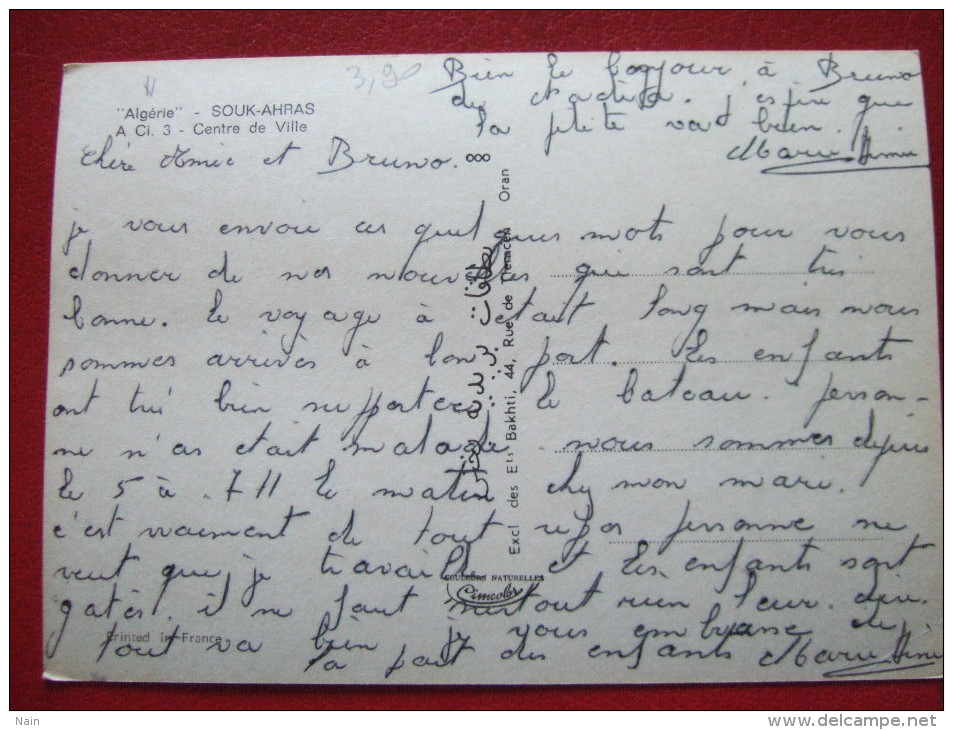 3,90
"Algérie" - SOUK-AHRAS
A Ci. 3 - Centre de Ville
Bien le bonjour à Bruno
de j'espère que
la petite va bien.
Marie
Chère Amie et Bruno.
je vous envoie ces quelques mots pour vous
donner de nos nouvelles qui sont très
bonne. le voyage à etait long mais nous
sommes arrivès à bon port. les enfants
ont très bien supporter le bateau. person-
ne n'as etait malade. nous sommes depuis
le 5 à 7H le matin chez mon mari.
c'est vraiement de tout repos personne ne
veut que je travaille et les enfants sont
gatès. il ne faut surtout rien leur dire.
tout va bien je vous embrasse de
la part des enfants Marie
800
Excl des Ets Bakhti, 44, Rue de Tlemcen Oran
COULEURS NATURELLES
Cimcolor
Printed in France
Nain
http://www.delcampe.net